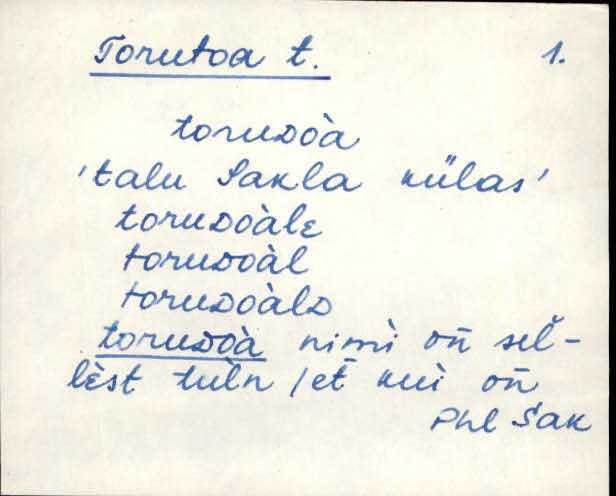 Torutoa t. 1.
toruᴅòa
'talu Sakla külas'
toruᴅoàlε
toruᴅoàl
toruᴅoàlᴅ
toruᴅòà nimì on̄ sel̆-
lèst tulǹ / et̄ kui on̄
Phl Sak